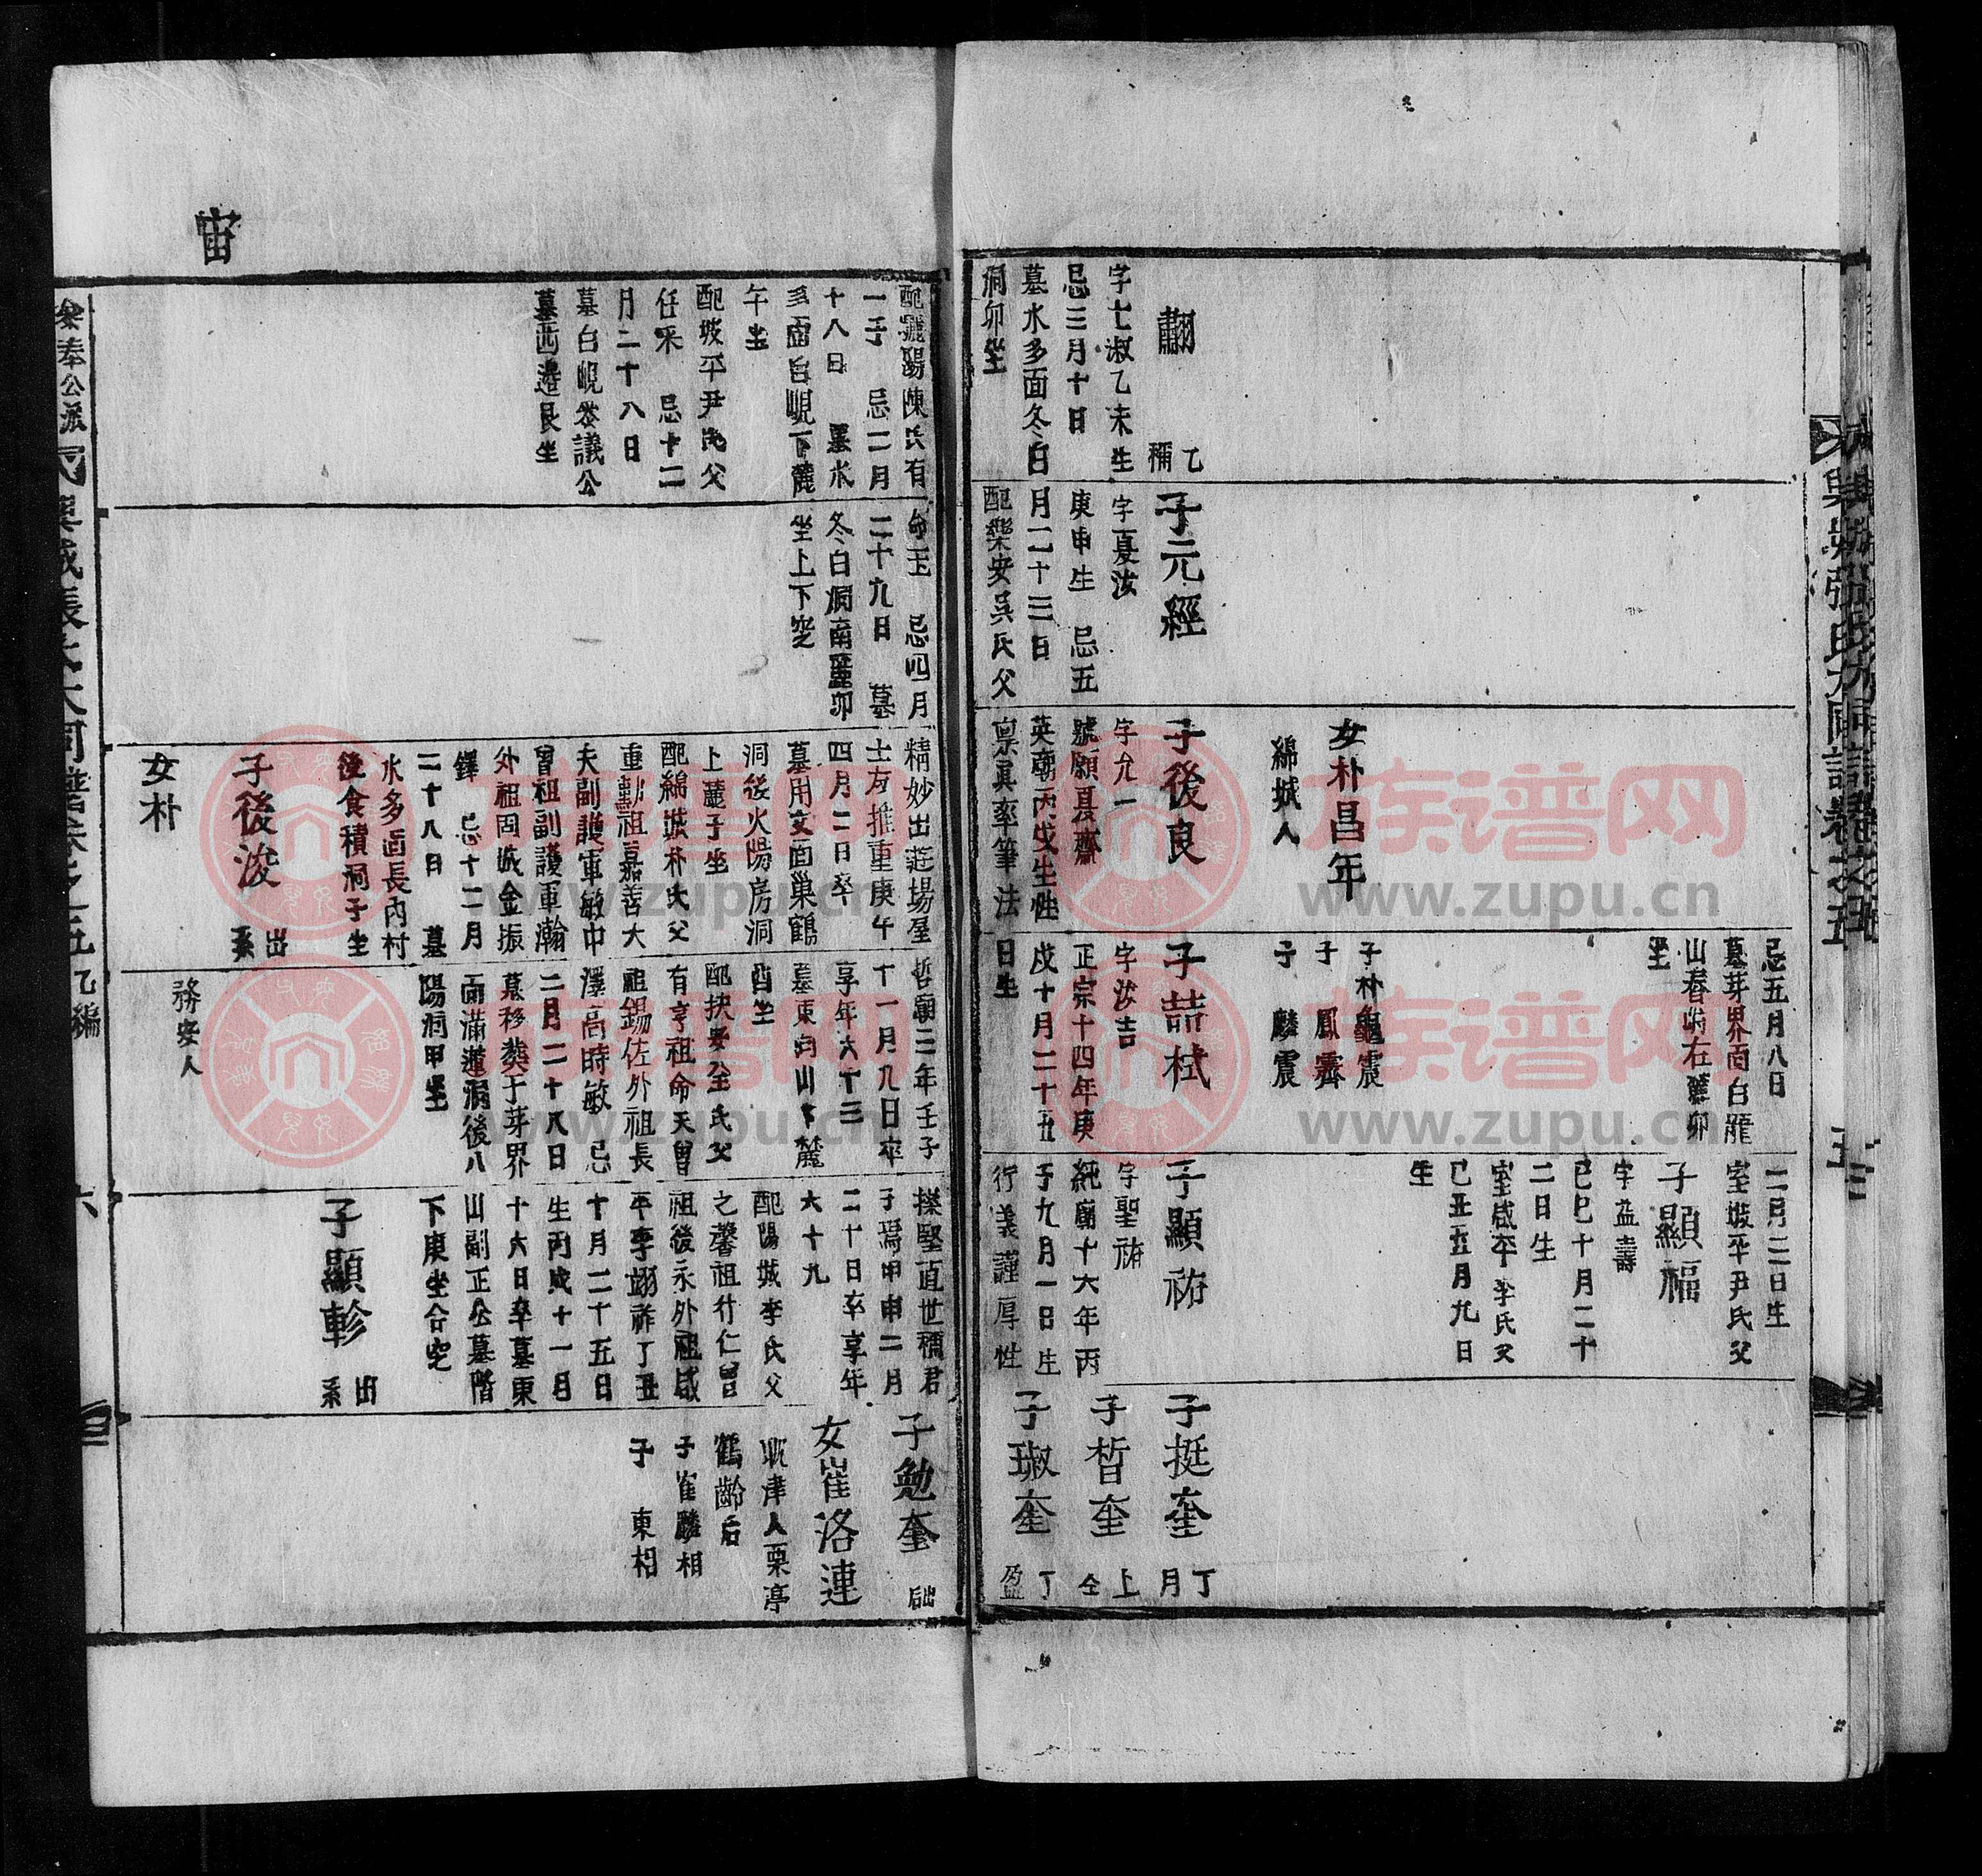 翿
乙
禰
字士淑乙未生
忌三月十日
墓水多面冬白
洞卯坐
子元經
字夏汝
庚申生　忌五
月二十三日
配樂安吳氏父
女朴昌年
綿城人
子後良
字允一
號願夏齋
英廟丙戌生性
稟眞率筆法
忌五月八日
墓芽界面白龍
山春崗右麓卯
坐
子朴龜震
子　鳳霽
子　麟震
子喆栻
字汝吉
正宗十四年庚
戌十月二十五
日生
二月二日生
室坡平尹氏父
子顯福
字益壽
己巳十月二十
二日生
室咸平李氏父
己丑五月九日
生
子顯祐
字聖祐
純廟十六年丙
子九月一日生
行義謹厚性
子挺奎
丁
月
子晳奎
上
仝
子琡奎
丁
盈
宙
配驪陽陳氏有
一子　忌二月
十八日　墓水
多面台峴下麓
午坐
配坡平尹氏父
任釆　忌十二
月二十八日
墓白峴參議公
墓西邊艮坐
命玉　忌四月
二十九日　墓
冬白洞南麓卯
坐上下窆
精妙出莚場屋
士友推重庚午
四月二日卒
墓用文面巢鶴
洞後火陽房洞
上麓子坐
配綿城朴氏父
重勳祖嘉善大
夫副護軍敏中
曾祖副護軍瀚
外祖固城金振
鐸　忌十二月
二十八日　墓
水多面長內村
後食積洞子坐
子後浚
出
系
女朴
哲廟三年壬子
十一月九日卒
享年六十三
墓東向山下麓
酉坐
配扶安金氏父
有亨祖命天曾
祖錫佐外祖長
澤高時敏　忌
二月二十八日
墓移葬于芽界
面滿蓮洞後八
陽洞甲坐
務安人
操堅直世稱君
子焉甲申二月
二十日卒享年
六十九
配陽城李氏父
之馨祖行仁曾
祖後永外祖咸
平李翊祚丁丑
十月二十五日
生丙戌十一月
十六日卒墓東
山副正公墓階
下庚坐合窆
子顯軫
出
系
子勉奎
女崔洛連
耽津人栗亭
鶴齡后
子崔麟相
子　東相
參奉公派
興城張氏大同譜卷之五
乙編
六
族谱网
www.zupu.cn
族谱网
www.zupu.cn
族谱网
www.zupu.cn
族谱网
www.zupu.cn